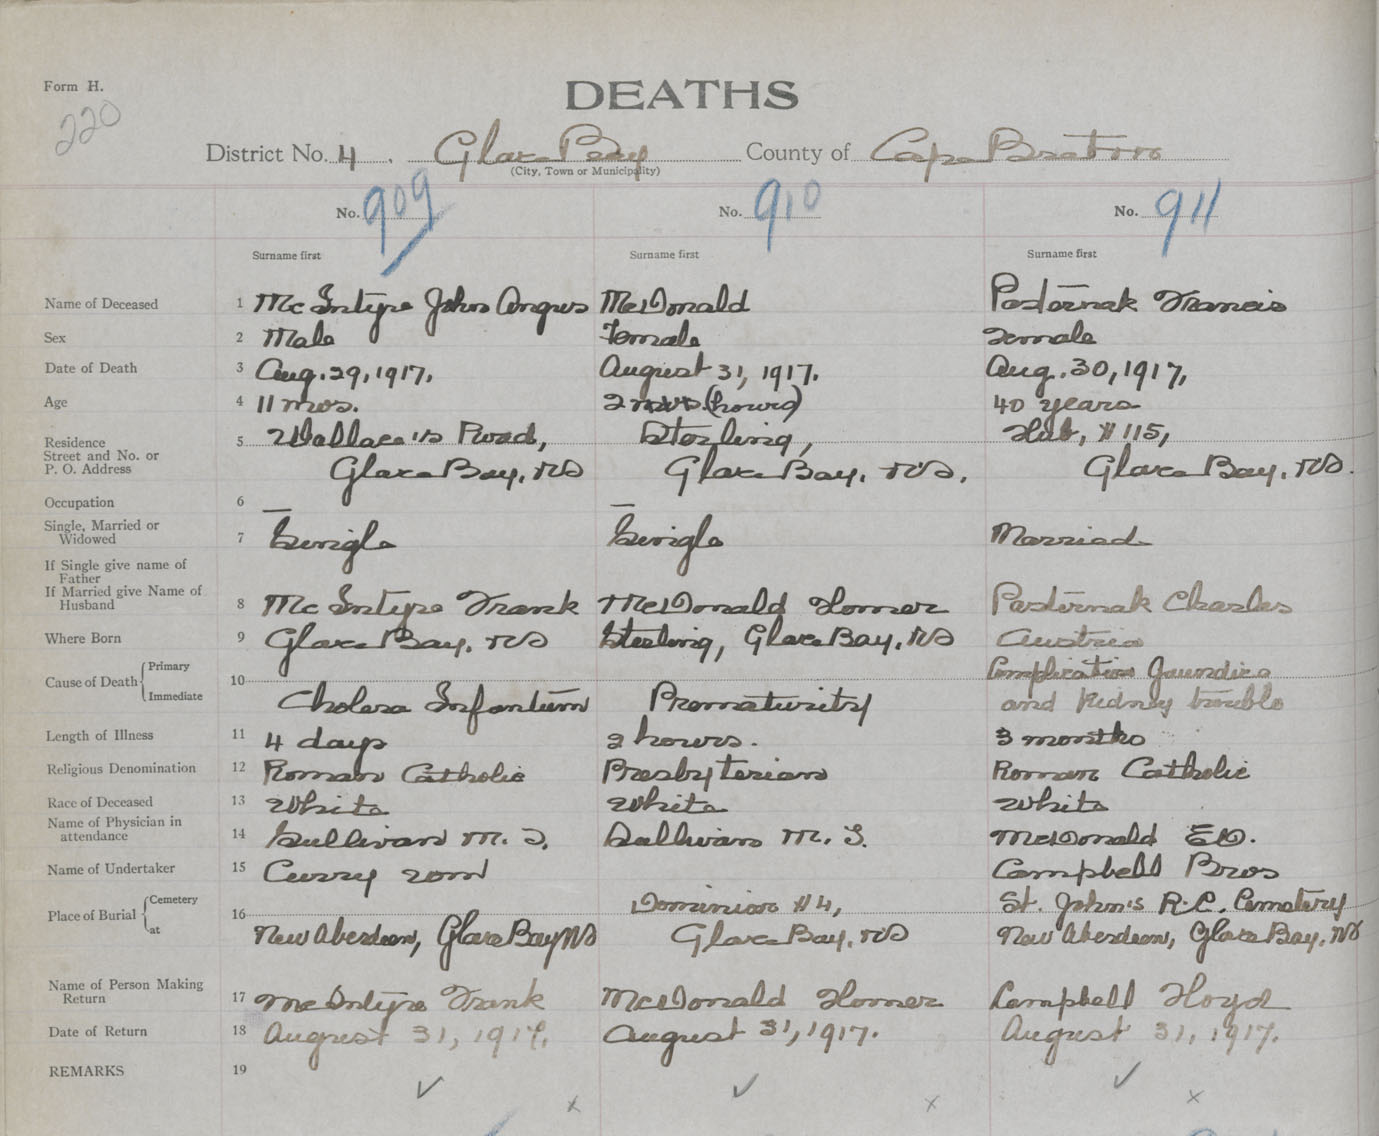 Form H.
220
DEATHS
District No. 4. Glace Bay County of Cape Breton
(City, Town or Municipality)
No. 909 No. 910 No. 911
Surname first Surname first Surname first
Name of Deceased 1 McIntyre John Angus McDonald Pasternak Francis
Sex 2 Male Female Female
Date of Death 3 Aug. 29, 1917. August 31, 1917. Aug. 30, 1917.
Age 4 11 mos. 2 (hours) 40 years
Residence 5 Wallace's Road, Sterling, Hub, #115,
Street and No. or
P. O. Address Glace Bay, NS Glace Bay, NS. Glace Bay, NS.
Occupation 6 — —
Single, Married or
Widowed 7 Single Single Married
If Single give name of
Father
If Married give Name of
Husband 8 McIntyre Frank McDonald Homer Pasternak Charles
Where Born 9 Glace Bay, NS Sterling, Glace Bay, NS Austria
Cause of Death Primary 10 Complication Jaundice
Immediate Cholera Infantum Prematurity and Kidney trouble
Length of Illness 11 4 days 2 hours. 3 months
Religious Denomination 12 Roman Catholic Presbyterian Roman Catholic
Race of Deceased 13 White White White
Name of Physician in
attendance 14 Sullivan M. T. Sullivan M. T. McDonald E.O.
Name of Undertaker 15 Curry Campbell Bros
Place of Burial Cemetery 16 Dominion #4, St. John's R.C. Cemetery
at New Aberdeen, Glace Bay NS Glace Bay, NS New Aberdeen, Glace Bay, NS
Name of Person Making
Return 17 McIntyre Frank McDonald Homer Campbell Floyd
Date of Return 18 August 31, 1917. August 31, 1917. August 31, 1917.
REMARKS 19